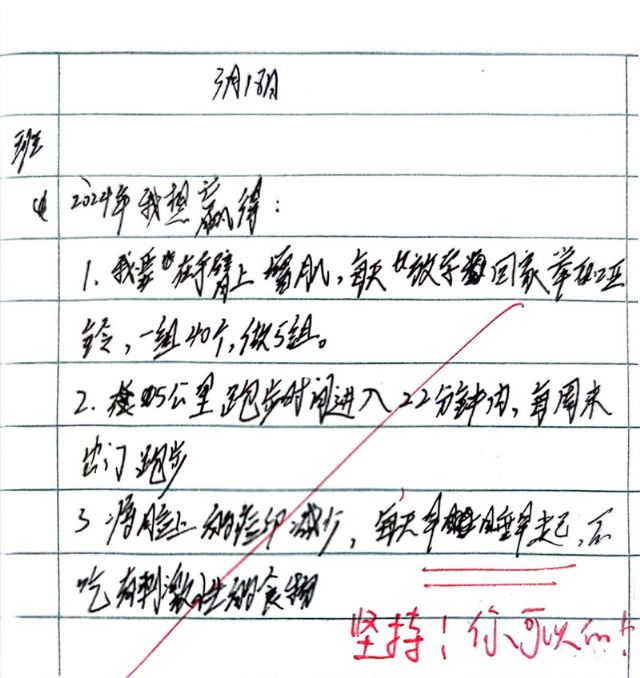 3月18日
班
4 2024年我想赢得:
1. 我要在手臂上增肌,每天放学回家举哑
铃,一组40个,做5组。
2. 5公里跑步时间进入22分钟内,每周末
出门跑步
3 将脸上的痘印减少,每天早睡早起,不
吃有刺激性的食物
坚持!你可以的!